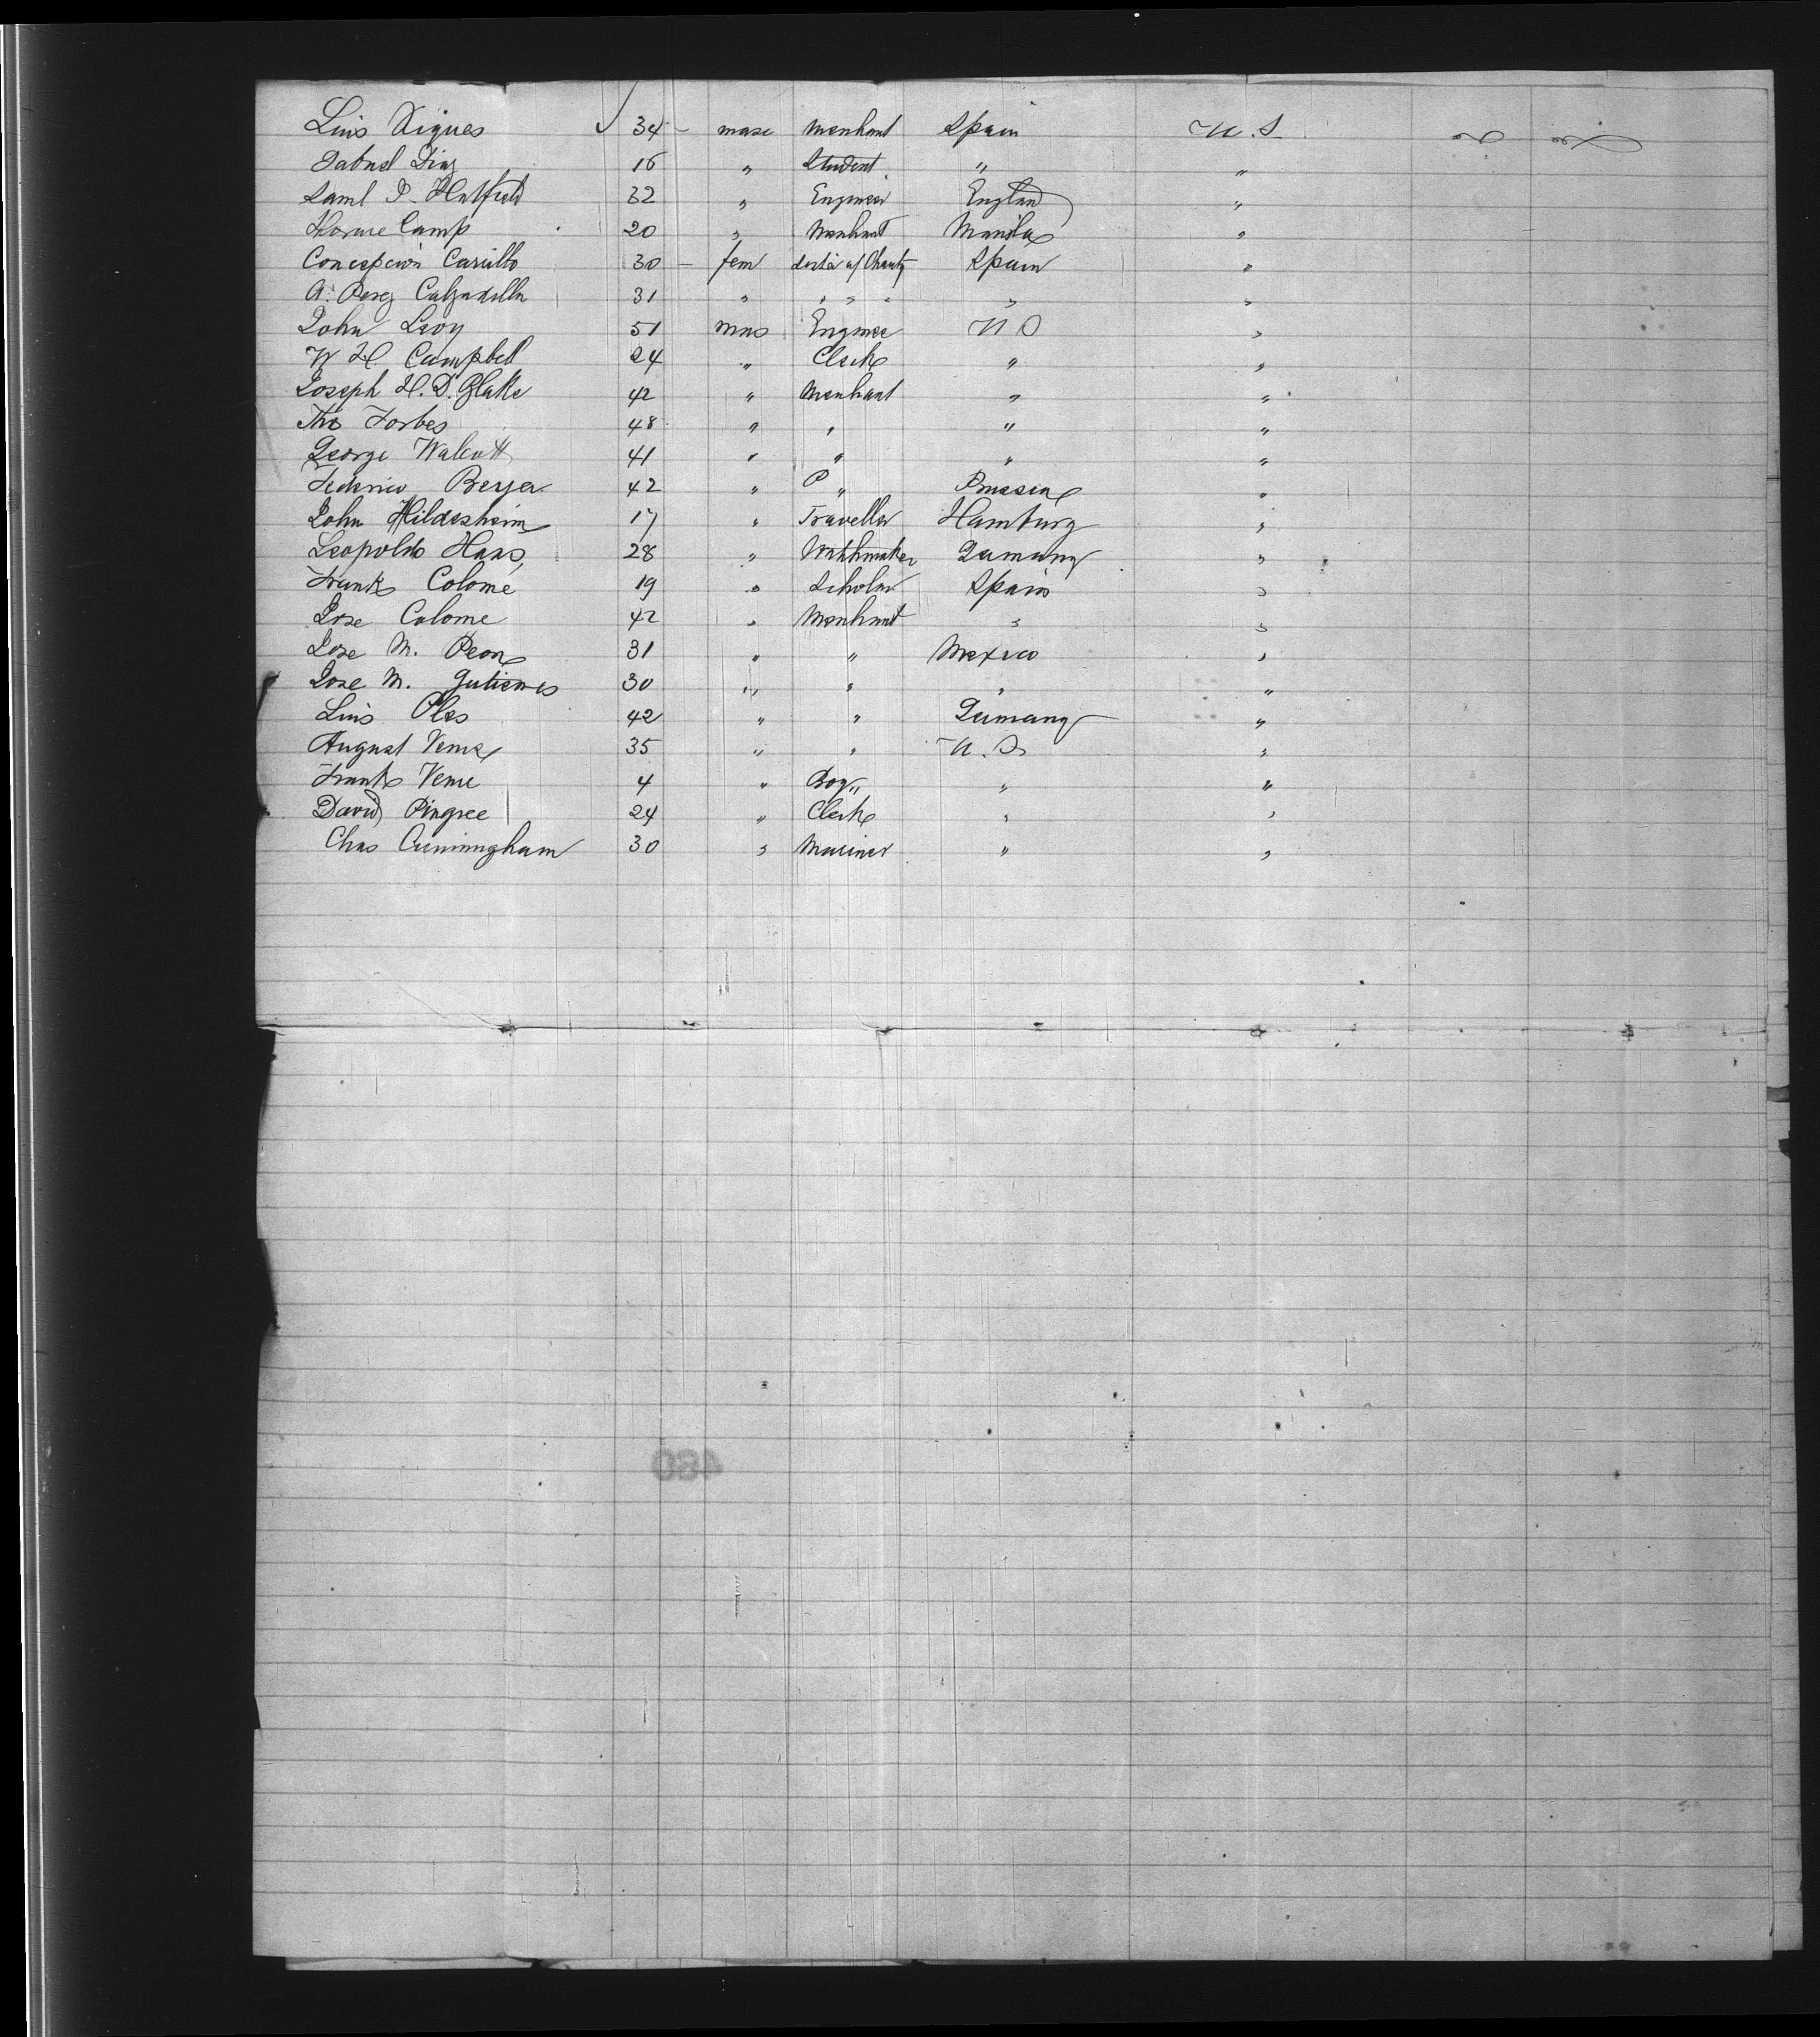 Luis Xiques 34 — masc Merchant Spain U.S
Gabriel Diaz 16 " Student " "
Saml P. Hatfield 32 " Engineer England "
Camp 20 " Merchant Manila "
Concepcion Carrillo 30 — fem Sister of Charity Spain "
A. Perez Calzadilla 31 " " " " " "
John Levy 51 mas Engineer U S "
W H Campbell 24 " Clerk " "
Joseph H. D. Blake 42 " Merchant " "
Tho Forbes 48 " " " "
George Walcott 41 " " " "
Federico Berger 42 " " Prussia "
John Hildesheim 17 " Traveller Hamburg "
Leopoldo Haas 28 " Watchmaker Germany "
Frank Colomé 19 " Scholar Spain "
Jose Colome 42 " Merchant " "
Jose M. Peon 31 " " Mexico "
Jose M. Gutierres 30 " " " "
Luis 42 " " Germany "
August Verne 35 " " U.S. "
Frank Verne 4 " Boy " "
David Pingree 24 " Clerk " "
Chas Cunningham 30 " Mariner " "
460